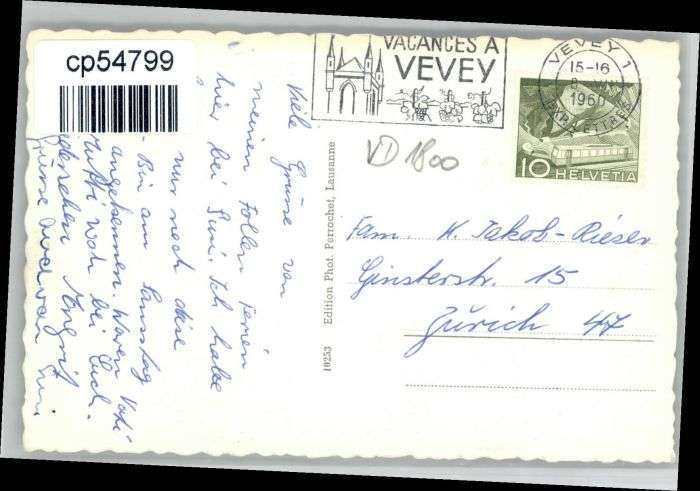 cp54799
VACANCES A
VEVEY
VEVEY 1
15-16
1960
10 HELVETIA
VD 1800
Viele Grüsse von
meinen tollen Ferien
hier bei Susi. Ich habe
nur noch diese
Bin am Samstag
angekommen. Waren Vati
Mutti wohl bei Euch.
Grüsse auch von
10253 Edition Phot. Perrochet, Lausanne
Fam. K. Jakob-Rieser
Ginsterstr. 15
Zürich 47